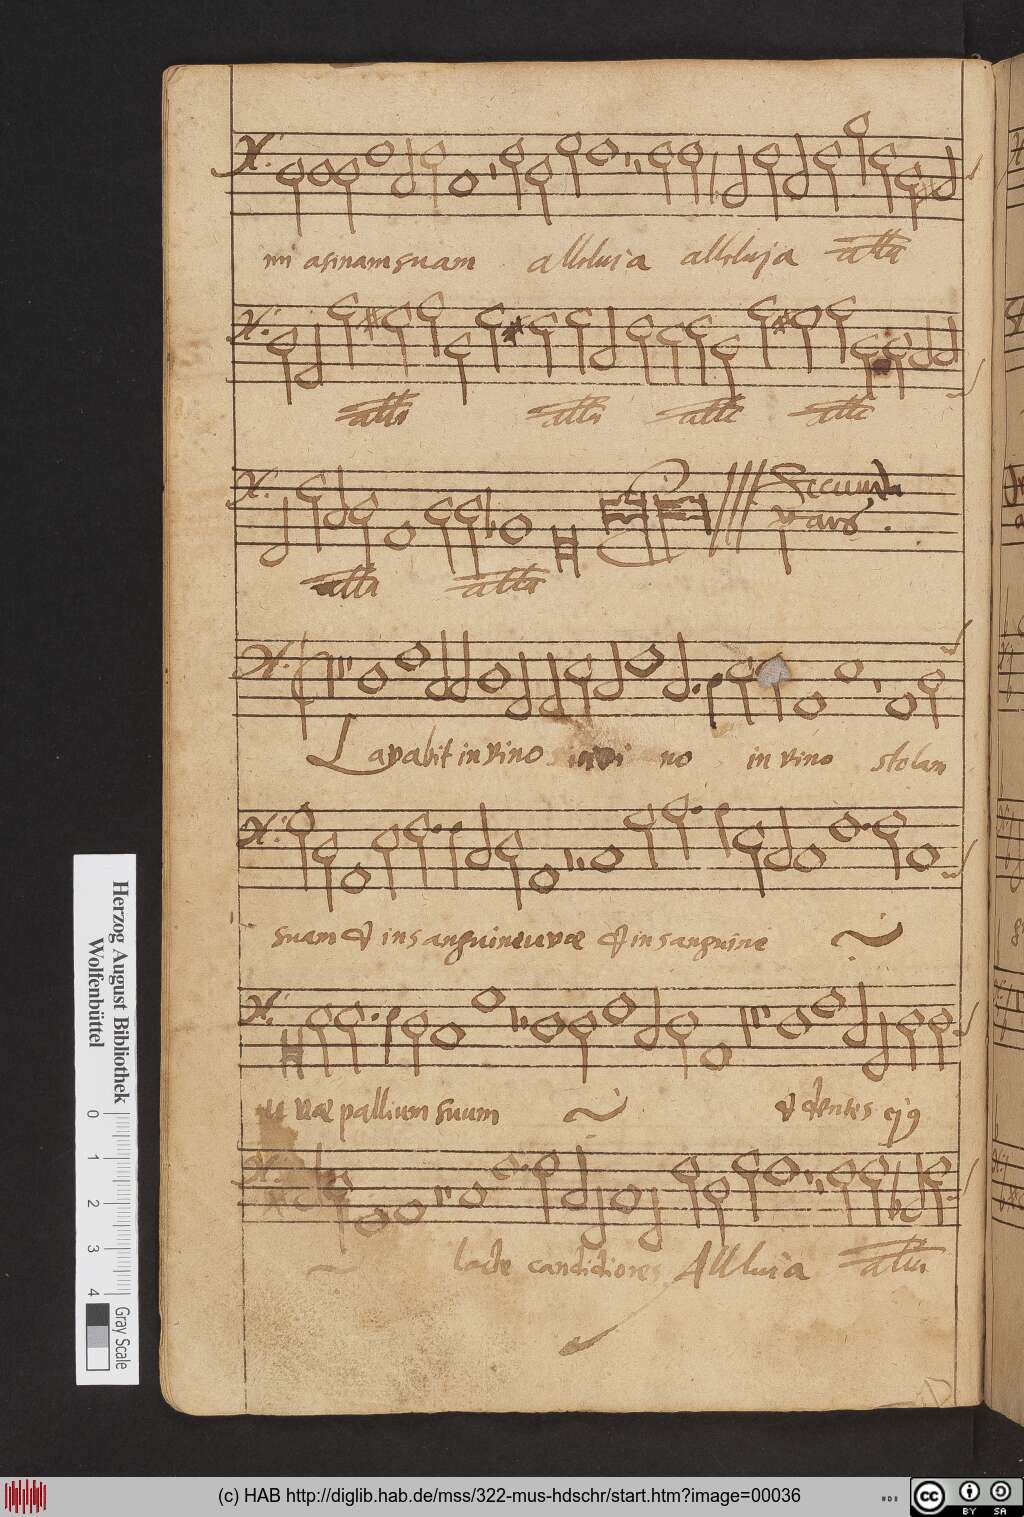 mi asinam suam alleluia alleluja alla
alla alla alla alla
Secunda
pars.
alla alla
Lavabit in vino in vi no in vino stolam
suam & in sanguine uvae & in sanguine
uvae pallium suum & dentes ej9
lacte candidiores Alleluia alla
Herzog August Bibliothek
Wolfenbüttel
0 1 2 3 4
Gray Scale
(c) HAB http://diglib.hab.de/mss/322-mus-hdschr/start.htm?image=00036
cc BY SA